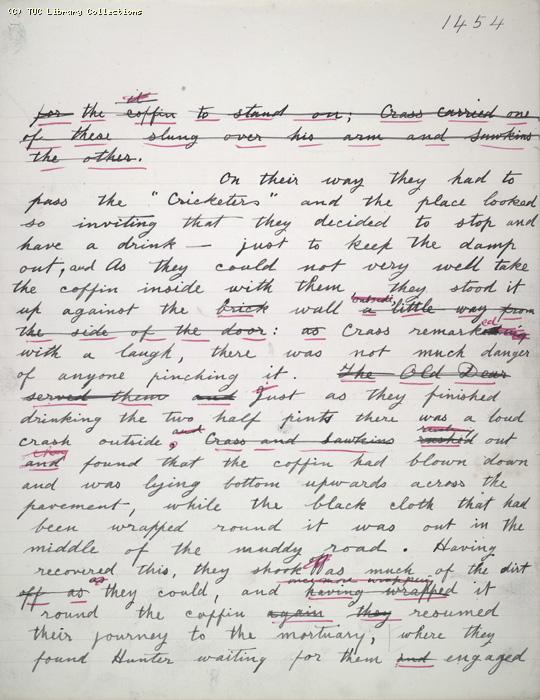 (C) TUC Library Collections
1454
it
for the coffin to stand on; Crass carried one
of these slung over his arm and Sawkins
the other.
On their way they had to
pass the "Cricketers" and the place looked
so inviting that they decided to stop and
have a drink — just to keep the damp
out, and As they could not very well take
the coffin inside with them, they stood it
up against the brick wall a little way from
the side of the door: as Crass remarked
with a laugh, there was not much danger
of anyone pinching it. The Old Dear
served them and Just as they finished
drinking the two half pints there was a loud
crash outside, and Crass and Sawkins rushed out
they
and found that the coffin had blown down
and was lying bottom upwards across the
pavement, while the black cloth that had
been wrapped round it was out in the
middle of the muddy road. Having
recovered this, they shook off as much of the dirt
off as as they could, and having wrapped it
once more wrapping
round the coffin again they resumed
their journey to the mortuary, where they
found Hunter waiting for them and engaged